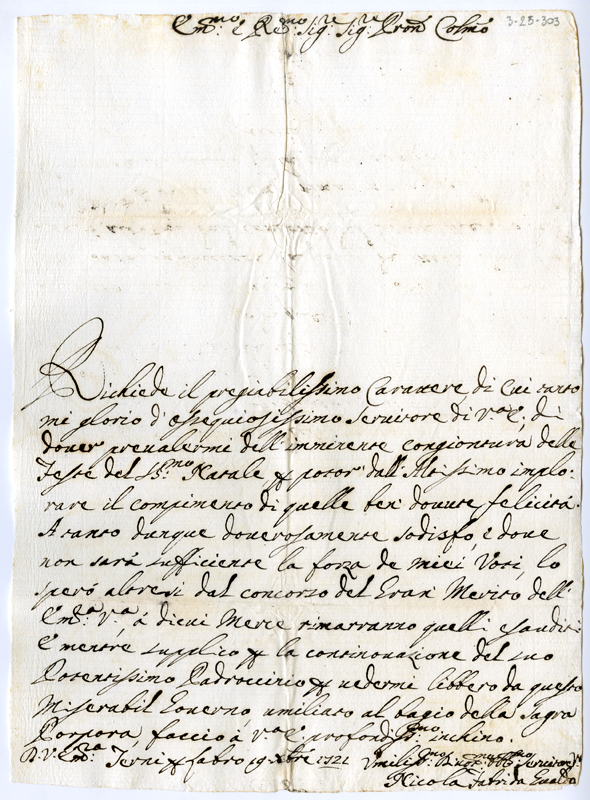 3-25-303
Em.mo e Re.mo Sig.re Sig.re Pron Colmo
Richiede il pregiabilissimo Carattere, di cui tanto
mi glorio d'ossequiosissimo Servitore di V.a E., di
dover prevalermi dell'imminente congiontura delle
Feste del SS.mo Natale p potor dall'Altissimo implo-
rare il compimento di quelle ben dovute felicità.
A tanto dunque doverosamente sodisfo, e dove
non sarà sufficiente la forza de miei Voti, lo
sperò altresì dal concorso del Gran Merito dell'
Em.a V.a, à di cui Merce rimarranno quelli esauditi
E mentre supplico p la continouazione del suo
Potentissimo Padroccinio p vedermi libbero da questo
Miserabil Governo, umiliato al bagio della Sagra
Porpora faccio à V.a E. profond.mo inchino.
D. V. Em.za Terni p Fabro 19 Xbre 1721
Umiliss.mo Servitore
Nicola